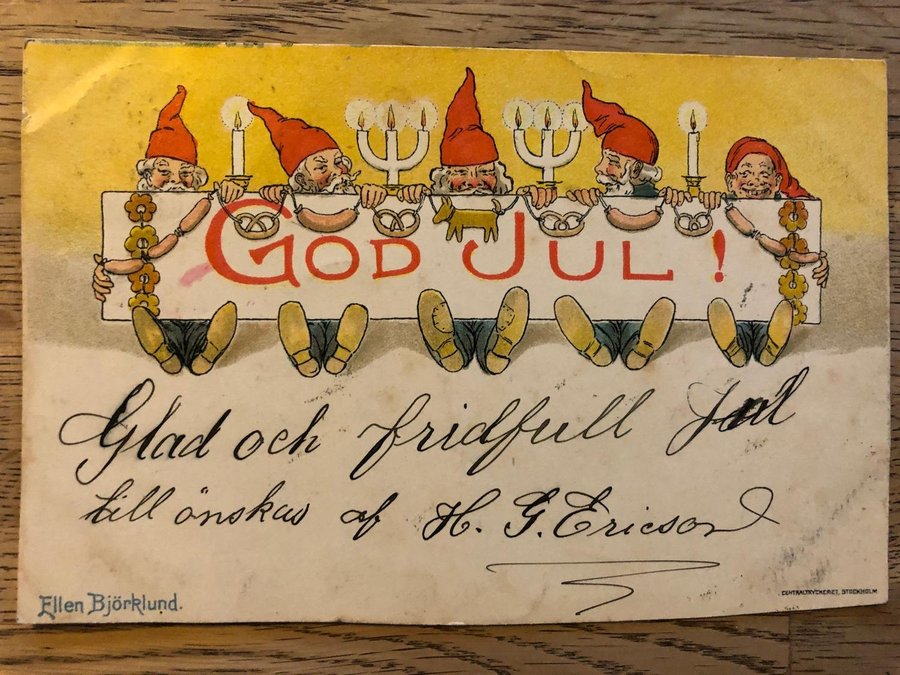 GOD JUL!
Glad och fridfull Jul
till önskas af H. G. Ericson
Ellen Björklund.
CENTRALTRYCKERIET, STOCKHOLM